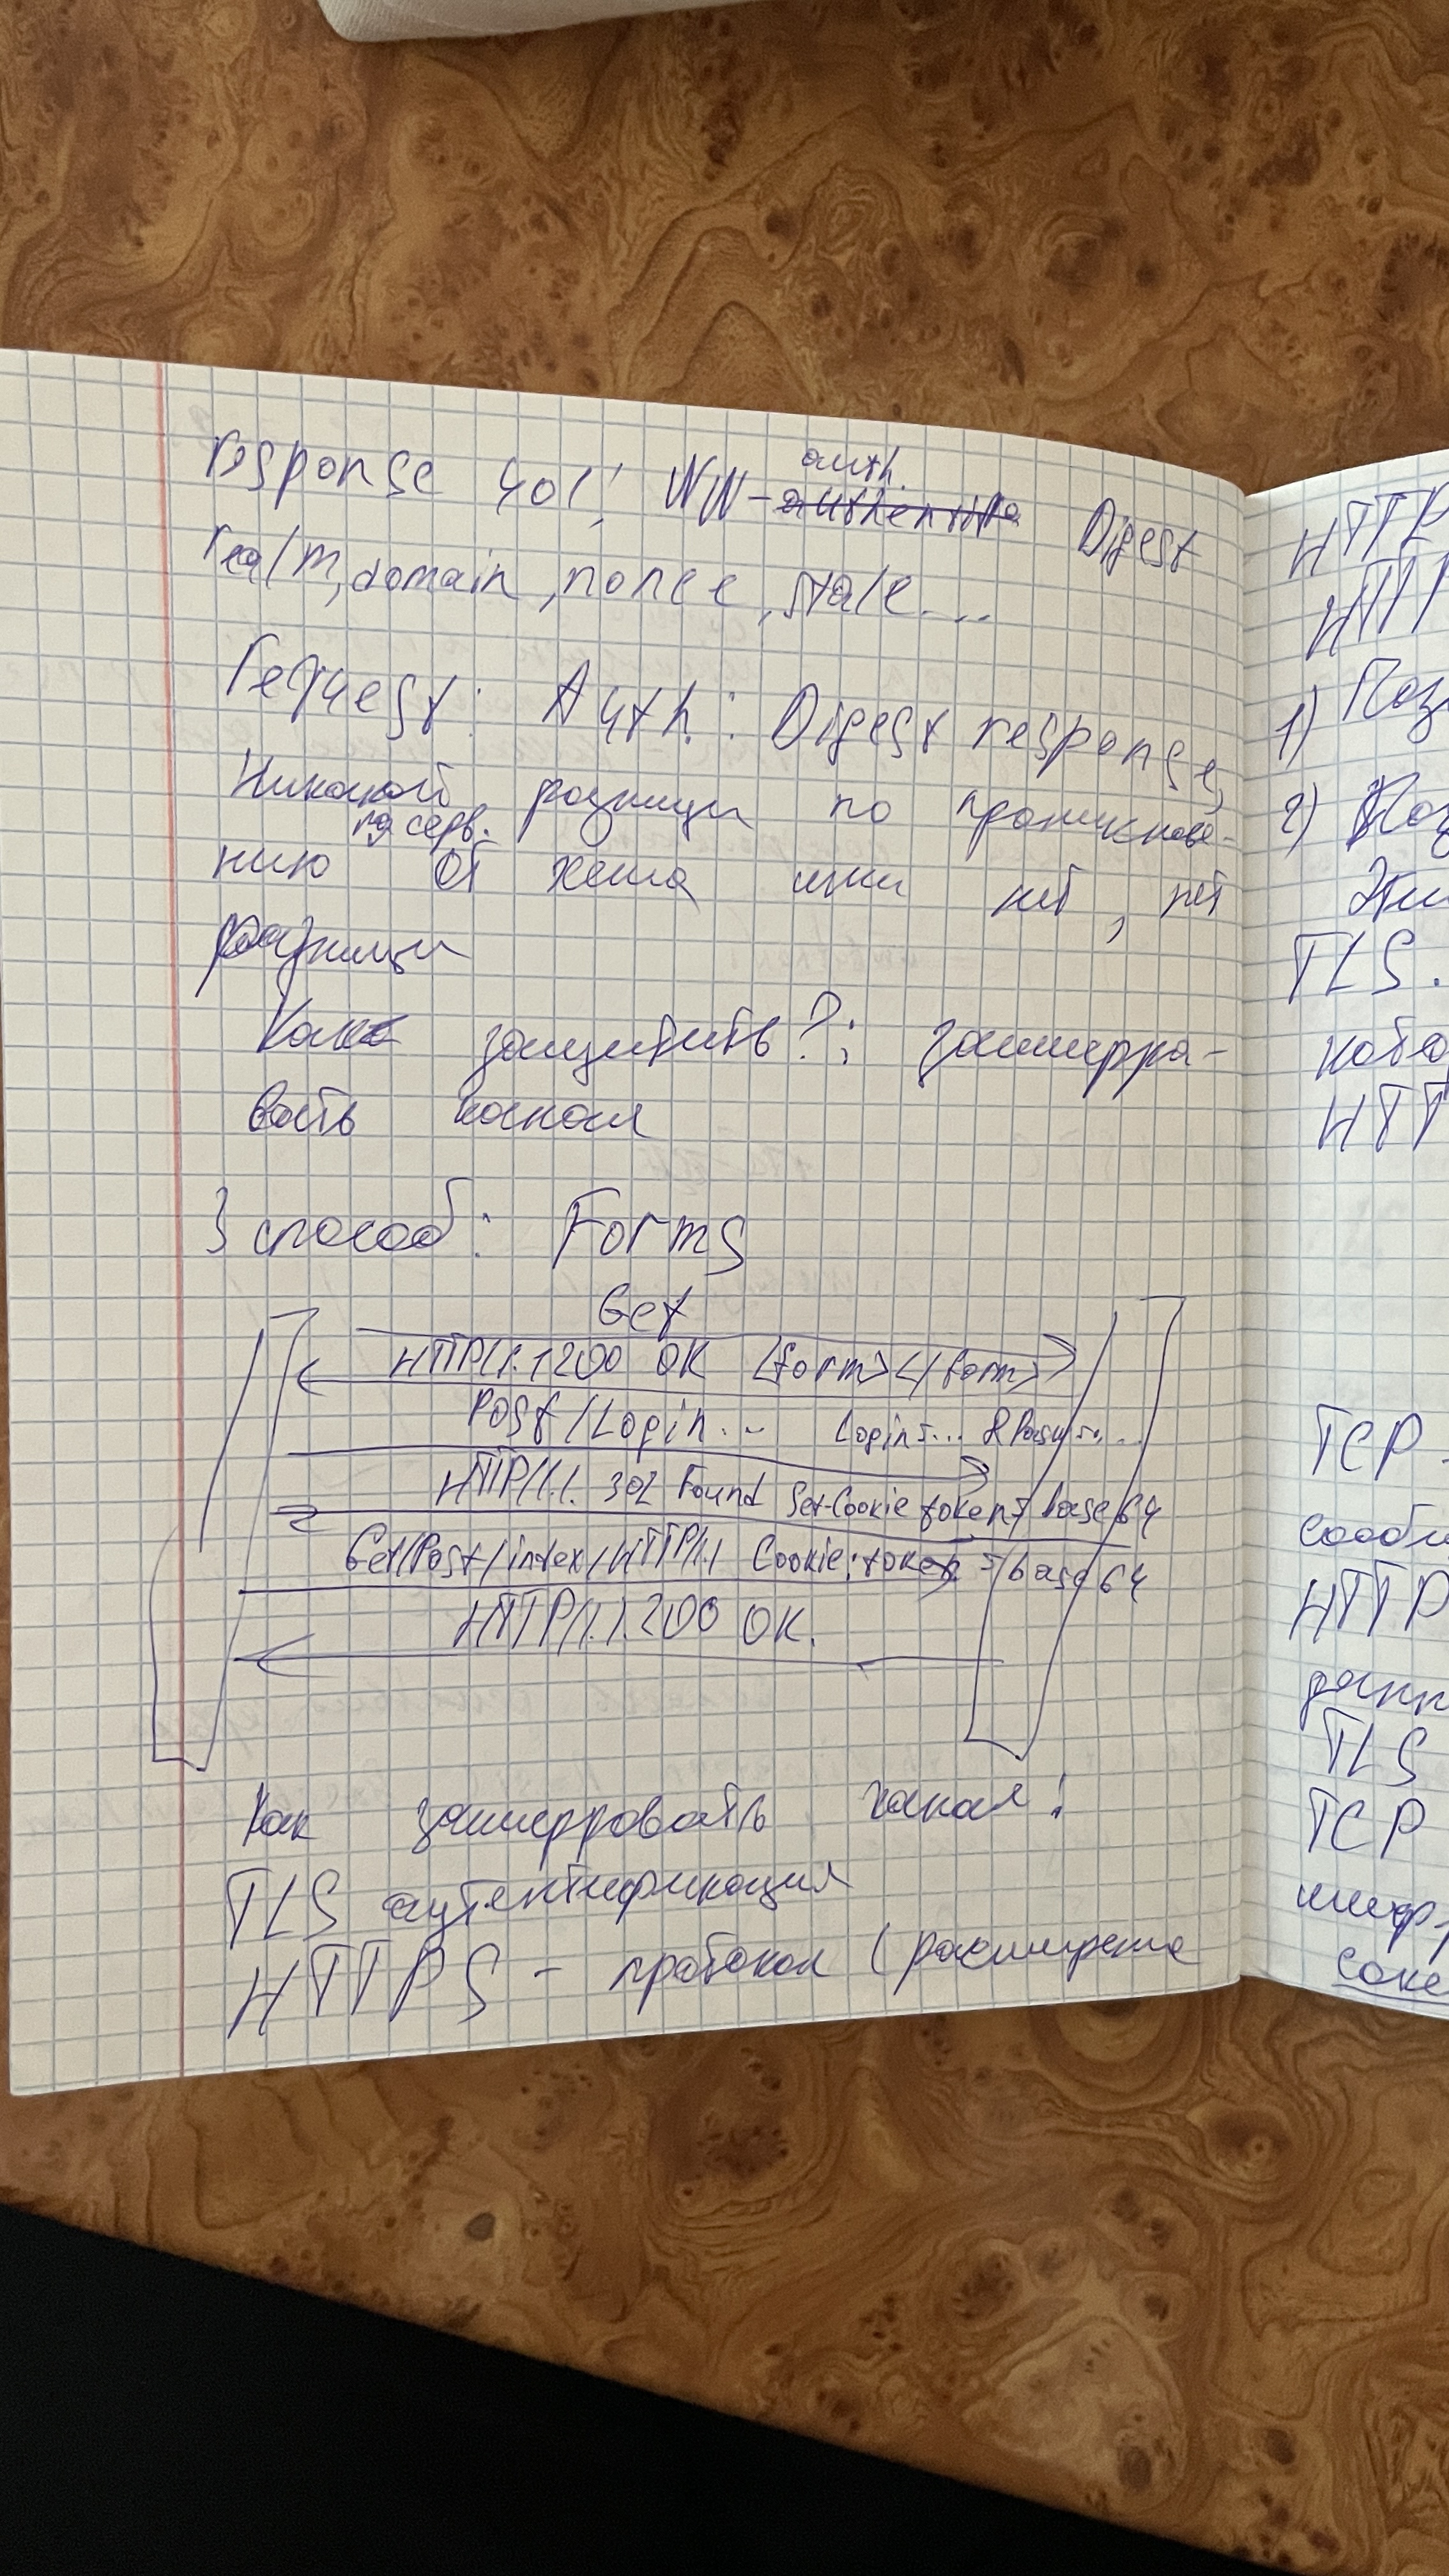 response 401; WW-auth. Digest
realm, domain, nonce, stale...
request: Auth.: Digest response,
Никакой разницы по проникнове-
на серв.
нию от хеша или нет, нет
разницы
Как защитить?: зашифро-
вать канал
3 способ: Forms
Get
HTTP/1.1 200 OK <form></form>
Post/Login... Login=... &Pasw=...
HTTP/1.1. 302 Found Set-Cookie token=base64
Get/Post/intex/HTTP/1.1 Cookie:token=base64
HTTP/1.1.200 OK.
Как зашифровать канал:
TLS аутентификация
HTTPS - протокол (расширение
HTTP
HTTP
1)
2)
TLS.
HTT
TCP -
HTTP
TLS
TCP